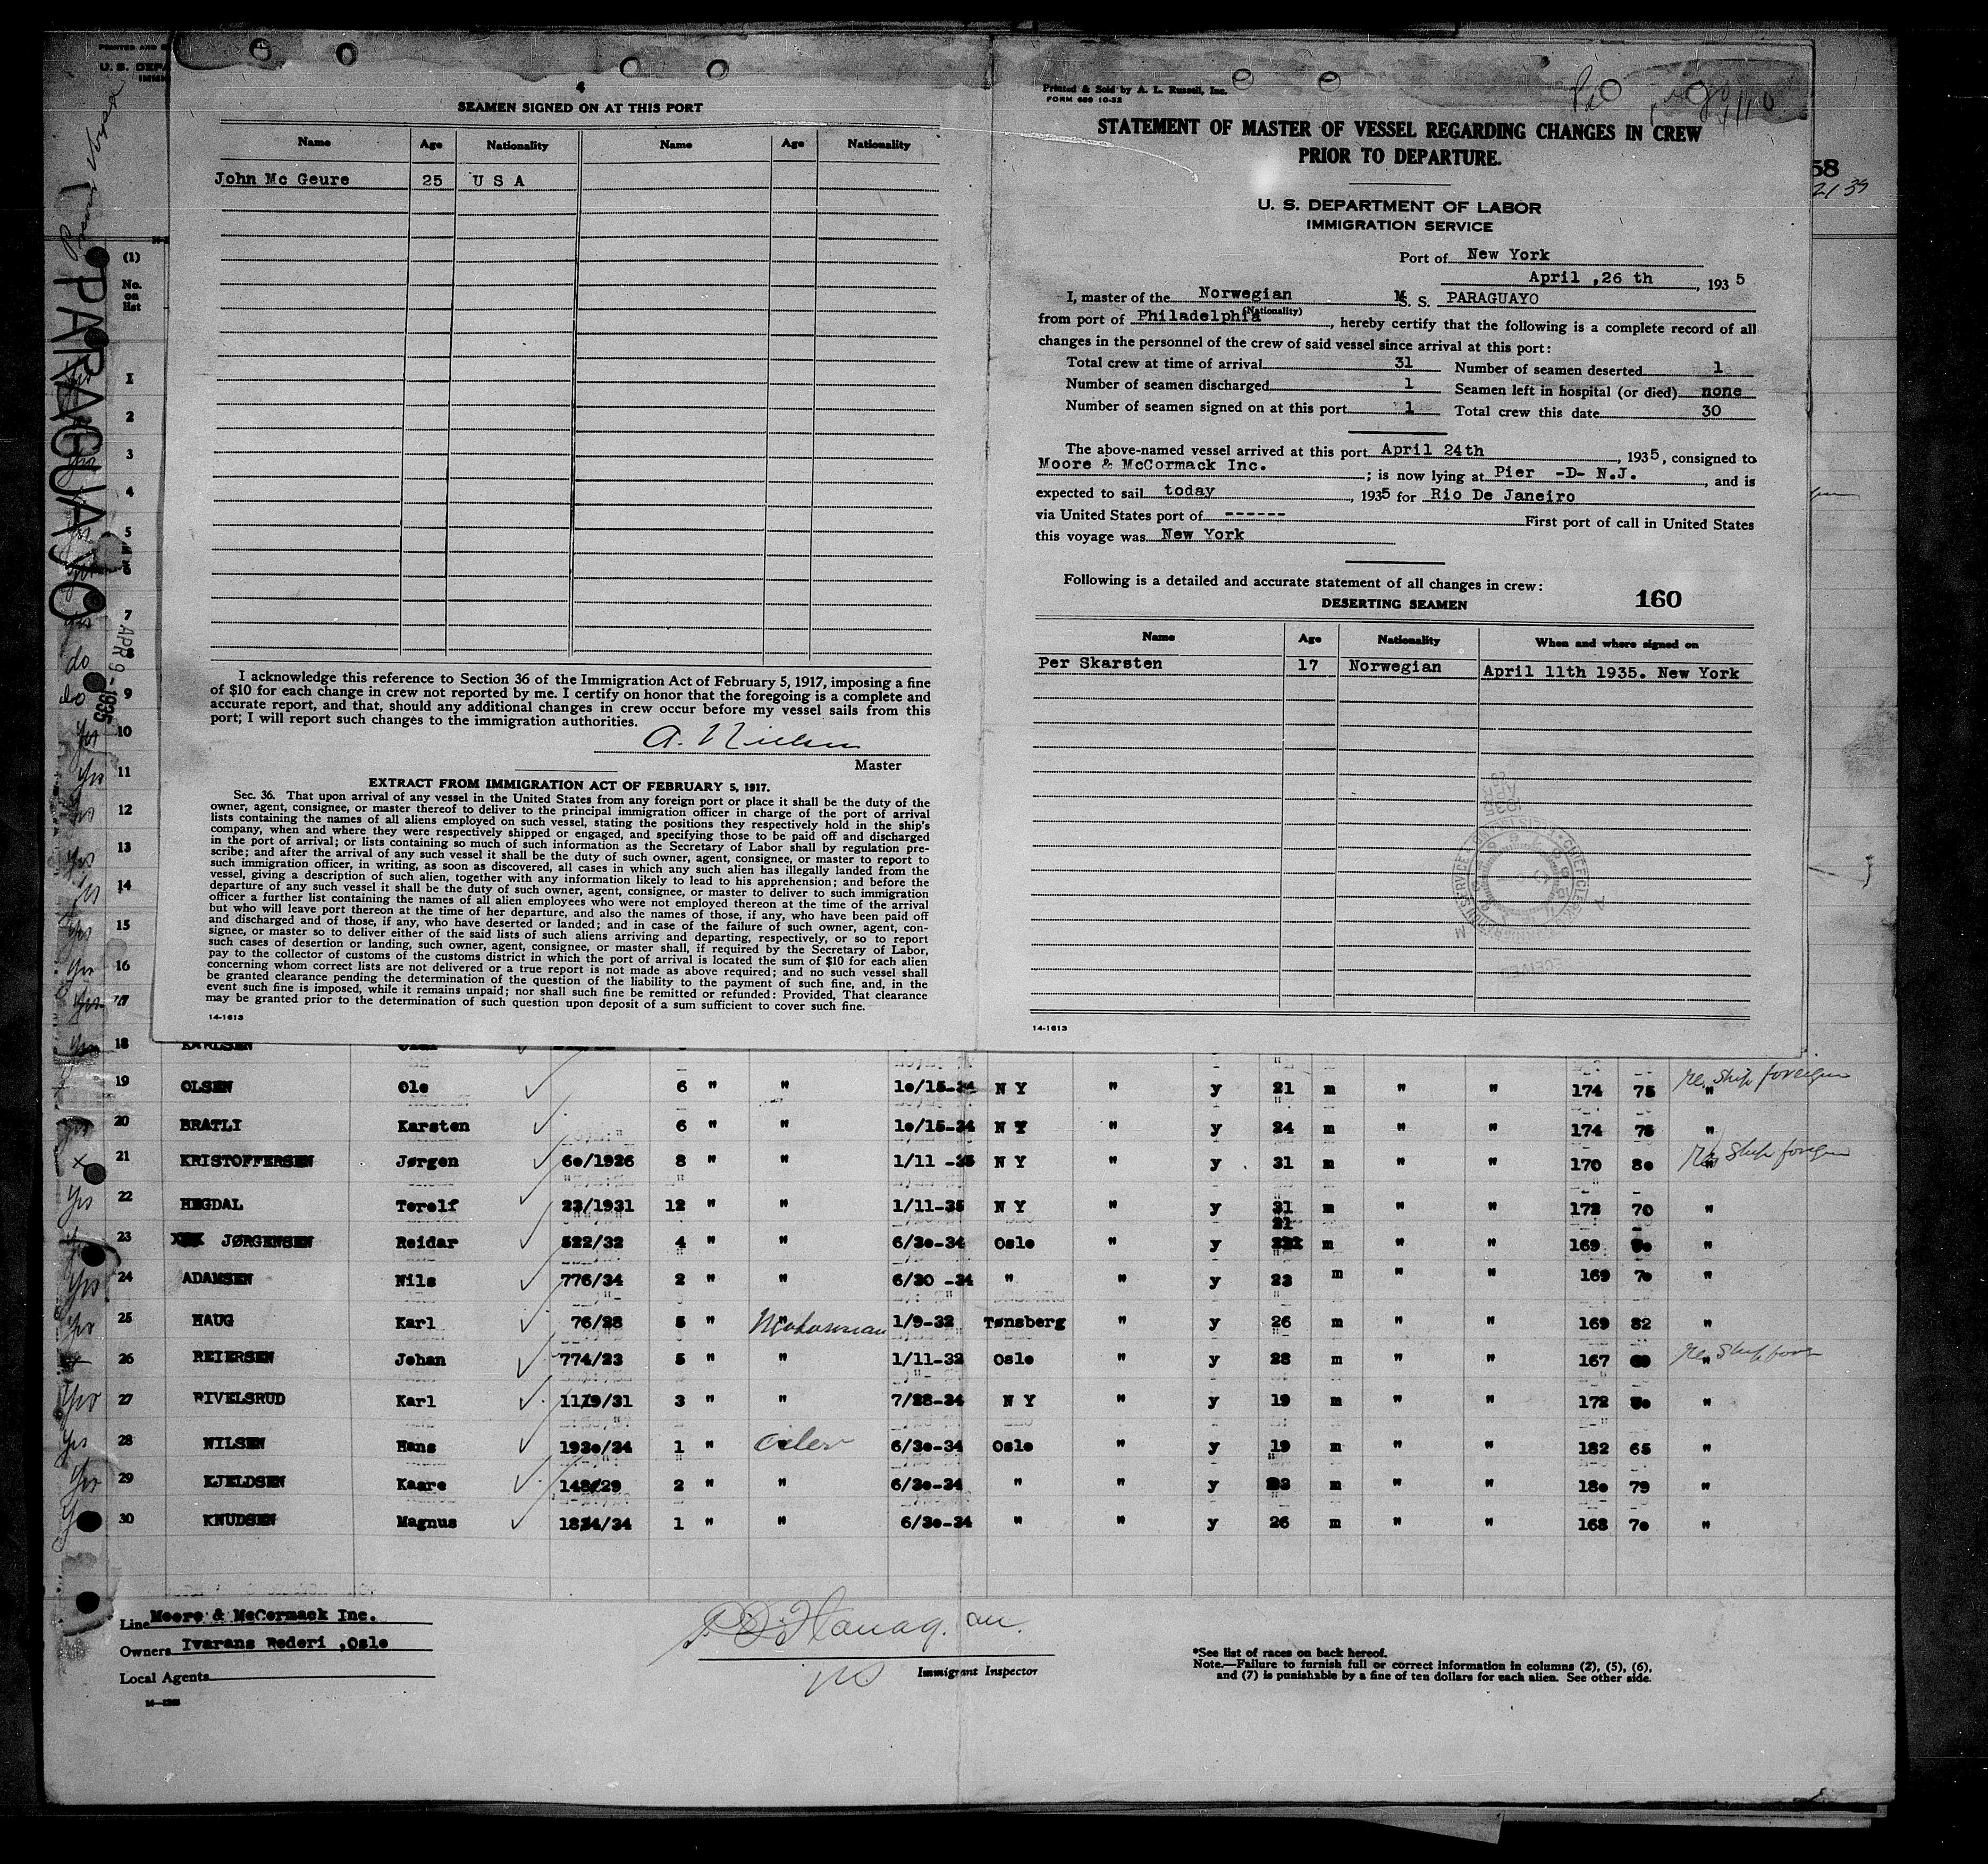 4
SEAMEN SIGNED ON AT THIS PORT
Name Age Nationality Name Age Nationality
John Mc Geure 25 U S A
I acknowledge this reference to Section 36 of the Immigration Act of February 5, 1917, imposing a fine
of $10 for each change in crew not reported by me. I certify on honor that the foregoing is a complete and
accurate report, and that, should any additional changes in crew occur before my vessel sails from this
port; I will report such changes to the immigration authorities.
Master
EXTRACT FROM IMMIGRATION ACT OF FEBRUARY 5, 1917.
Sec. 36. That upon arrival of any vessel in the United States from any foreign port or place it shall be the duty of the
owner, agent, consignee, or master thereof to deliver to the principal immigration officer in charge of the port of arrival
lists containing the names of all aliens employed on such vessel, stating the positions they respectively hold in the ship's
company, when and where they were respectively shipped or engaged, and specifying those to be paid off and discharged
in the port of arrival; or lists containing so much of such information as the Secretary of Labor shall by regulation pre-
scribe; and after the arrival of any such vessel it shall be the duty of such owner, agent, consignee, or master to report to
such immigration officer, in writing, as soon as discovered, all cases in which any such alien has illegally landed from the
vessel, giving a description of such alien, together with any information likely to lead to his apprehension; and before the
departure of any such vessel it shall be the duty of such owner, agent, consignee, or master to deliver to such immigration
officer a further list containing the names of all alien employees who were not employed thereon at the time of the arrival
but who will leave port thereon at the time of her departure, and also the names of those, if any, who have been paid off
and discharged and of those, if any, who have deserted or landed; and in case of the failure of such owner, agent, con-
signee, or master so to deliver either of the said lists of such aliens arriving and departing, respectively, or so to report
such cases of desertion or landing, such owner, agent, consignee, or master shall, if required by the Secretary of Labor,
pay to the collector of customs of the customs district in which the port of arrival is located the sum of $10 for each alien
concerning whom correct lists are not delivered or a true report is not made as above required; and no such vessel shall
be granted clearance pending the determination of the question of the liability to the payment of such fine, and, in the
event such fine is imposed, while it remains unpaid; nor shall such fine be remitted or refunded: Provided, That clearance
may be granted prior to the determination of such question upon deposit of a sum sufficient to cover such fine.
14-1613
Printed & Sold by A. L. Russell, Inc.
FORM 689 10-32
STATEMENT OF MASTER OF VESSEL REGARDING CHANGES IN CREW
PRIOR TO DEPARTURE.
U. S. DEPARTMENT OF LABOR
IMMIGRATION SERVICE
Port of New York
April ,26 th, 1935
I, master of the Norwegian M S. S. PARAGUAYO
(Nationality)
from port of Philadelphia, hereby certify that the following is a complete record of all
changes in the personnel of the crew of said vessel since arrival at this port:
Total crew at time of arrival 31 Number of seamen deserted 1
Number of seamen discharged 1 Seamen left in hospital (or died) none
Number of seamen signed on at this port 1 Total crew this date 30
The above-named vessel arrived at this port April 24th, 1935, consigned to
Moore & McCormack Inc.; is now lying at Pier -D- N.J., and is
expected to sail today, 1935 for Rio De Janeiro
via United States port of ------ First port of call in United States
this voyage was New York
Following is a detailed and accurate statement of all changes in crew:
DESERTING SEAMEN 160
Name Age Nationality When and where signed on
Per Skarsten 17 Norwegian April 11th 1935. New York
14-1613
PARAGUAYO
APR 9 - 1935
(1)
No.
on
list
1
2
3
4
5
6
7
8
9
10
11
12
13
14
15
16
17
18 KARLSEN
19 OLSEN Ole 6 " " 10/15-34 N Y " y 21 m " " 174 75 " re ship foreign
20 BRATLI Karsten 6 " " 10/15-34 N Y " y 24 m " " 174 75 "
21 KRISTOFFERSEN Jørgen 60/1926 8 " " 1/11 -35 N Y " y 31 m " " 170 80 " re ship foreign
22 HEGDAL Torolf 23/1931 12 " " 1/11-35 N Y " y 31 m " " 172 70 "
23 JØRGENSEN Reidar 522/32 4 " " 6/30-34 Oslo " y 21 m " " 169 "
24 ADAMSEN Nils 776/34 2 " " 6/30 -34 " " y 23 m " " 169 70 "
25 HAUG Karl 76/28 5 " Motorman 1/9-32 Tønsberg " y 26 m " " 169 82 "
26 REIERSEN Johan 774/23 5 " " 1/11-32 Oslo " y 28 m " " 167 " re ship forn
27 RIVELSRUD Karl 1119/31 3 " " 7/28-34 N Y " y 19 m " " 172 "
28 NILSEN Hans 1930/34 1 " Oiler 6/30-34 Oslo " y 19 m " " 182 65 "
29 KJELDSEN Kaare 148/29 2 " " 6/30-34 " " y m " " 180 79 "
30 KNUDSEN Magnus 1834/34 1 " " 6/30-34 " " y 26 m " " 168 70 "
Line Moore & McCormack Inc.
Owners Ivarans Rederi ,Oslo
Local Agents
Immigrant Inspector
*See list of races on back hereof.
Note.—Failure to furnish full or correct information in columns (2), (5), (6),
and (7) is punishable by a fine of ten dollars for each alien. See other side.